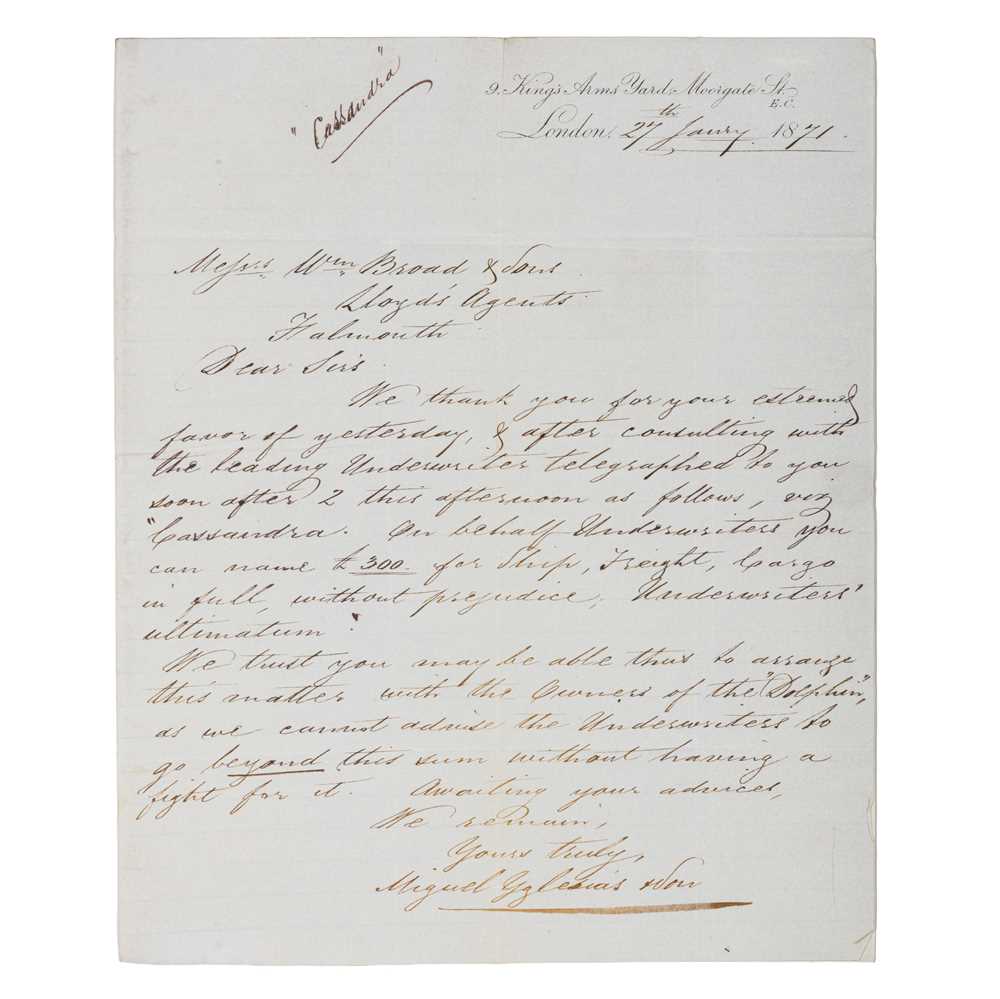 "Cassandra"
9. King's Arms Yard, Moorgate St
E.C.
London, 27th Janry 1871.
Messrs Wm Broad & Sons
Lloyd's Agents
Falmouth
Dear Sirs
We thank you for your esteemed
favor of yesterday, & after consulting with
the leading Underwriter telegraphed to you
soon after 2 this afternoon as follows, viz
"Cassandra. On behalf Underwriters you
can name £300. for Ship, Freight, Cargo
in full, without prejudice, Underwriters'
ultimatum."
We trust you may be able thus to arrange
this matter with the Owners of the "Dolphin",
as we cannot advise the Underwriters to
go beyond this sum without having a
fight for it. Awaiting your advices,
We remain,
Yours truly,
Miguel Yglesias & Son